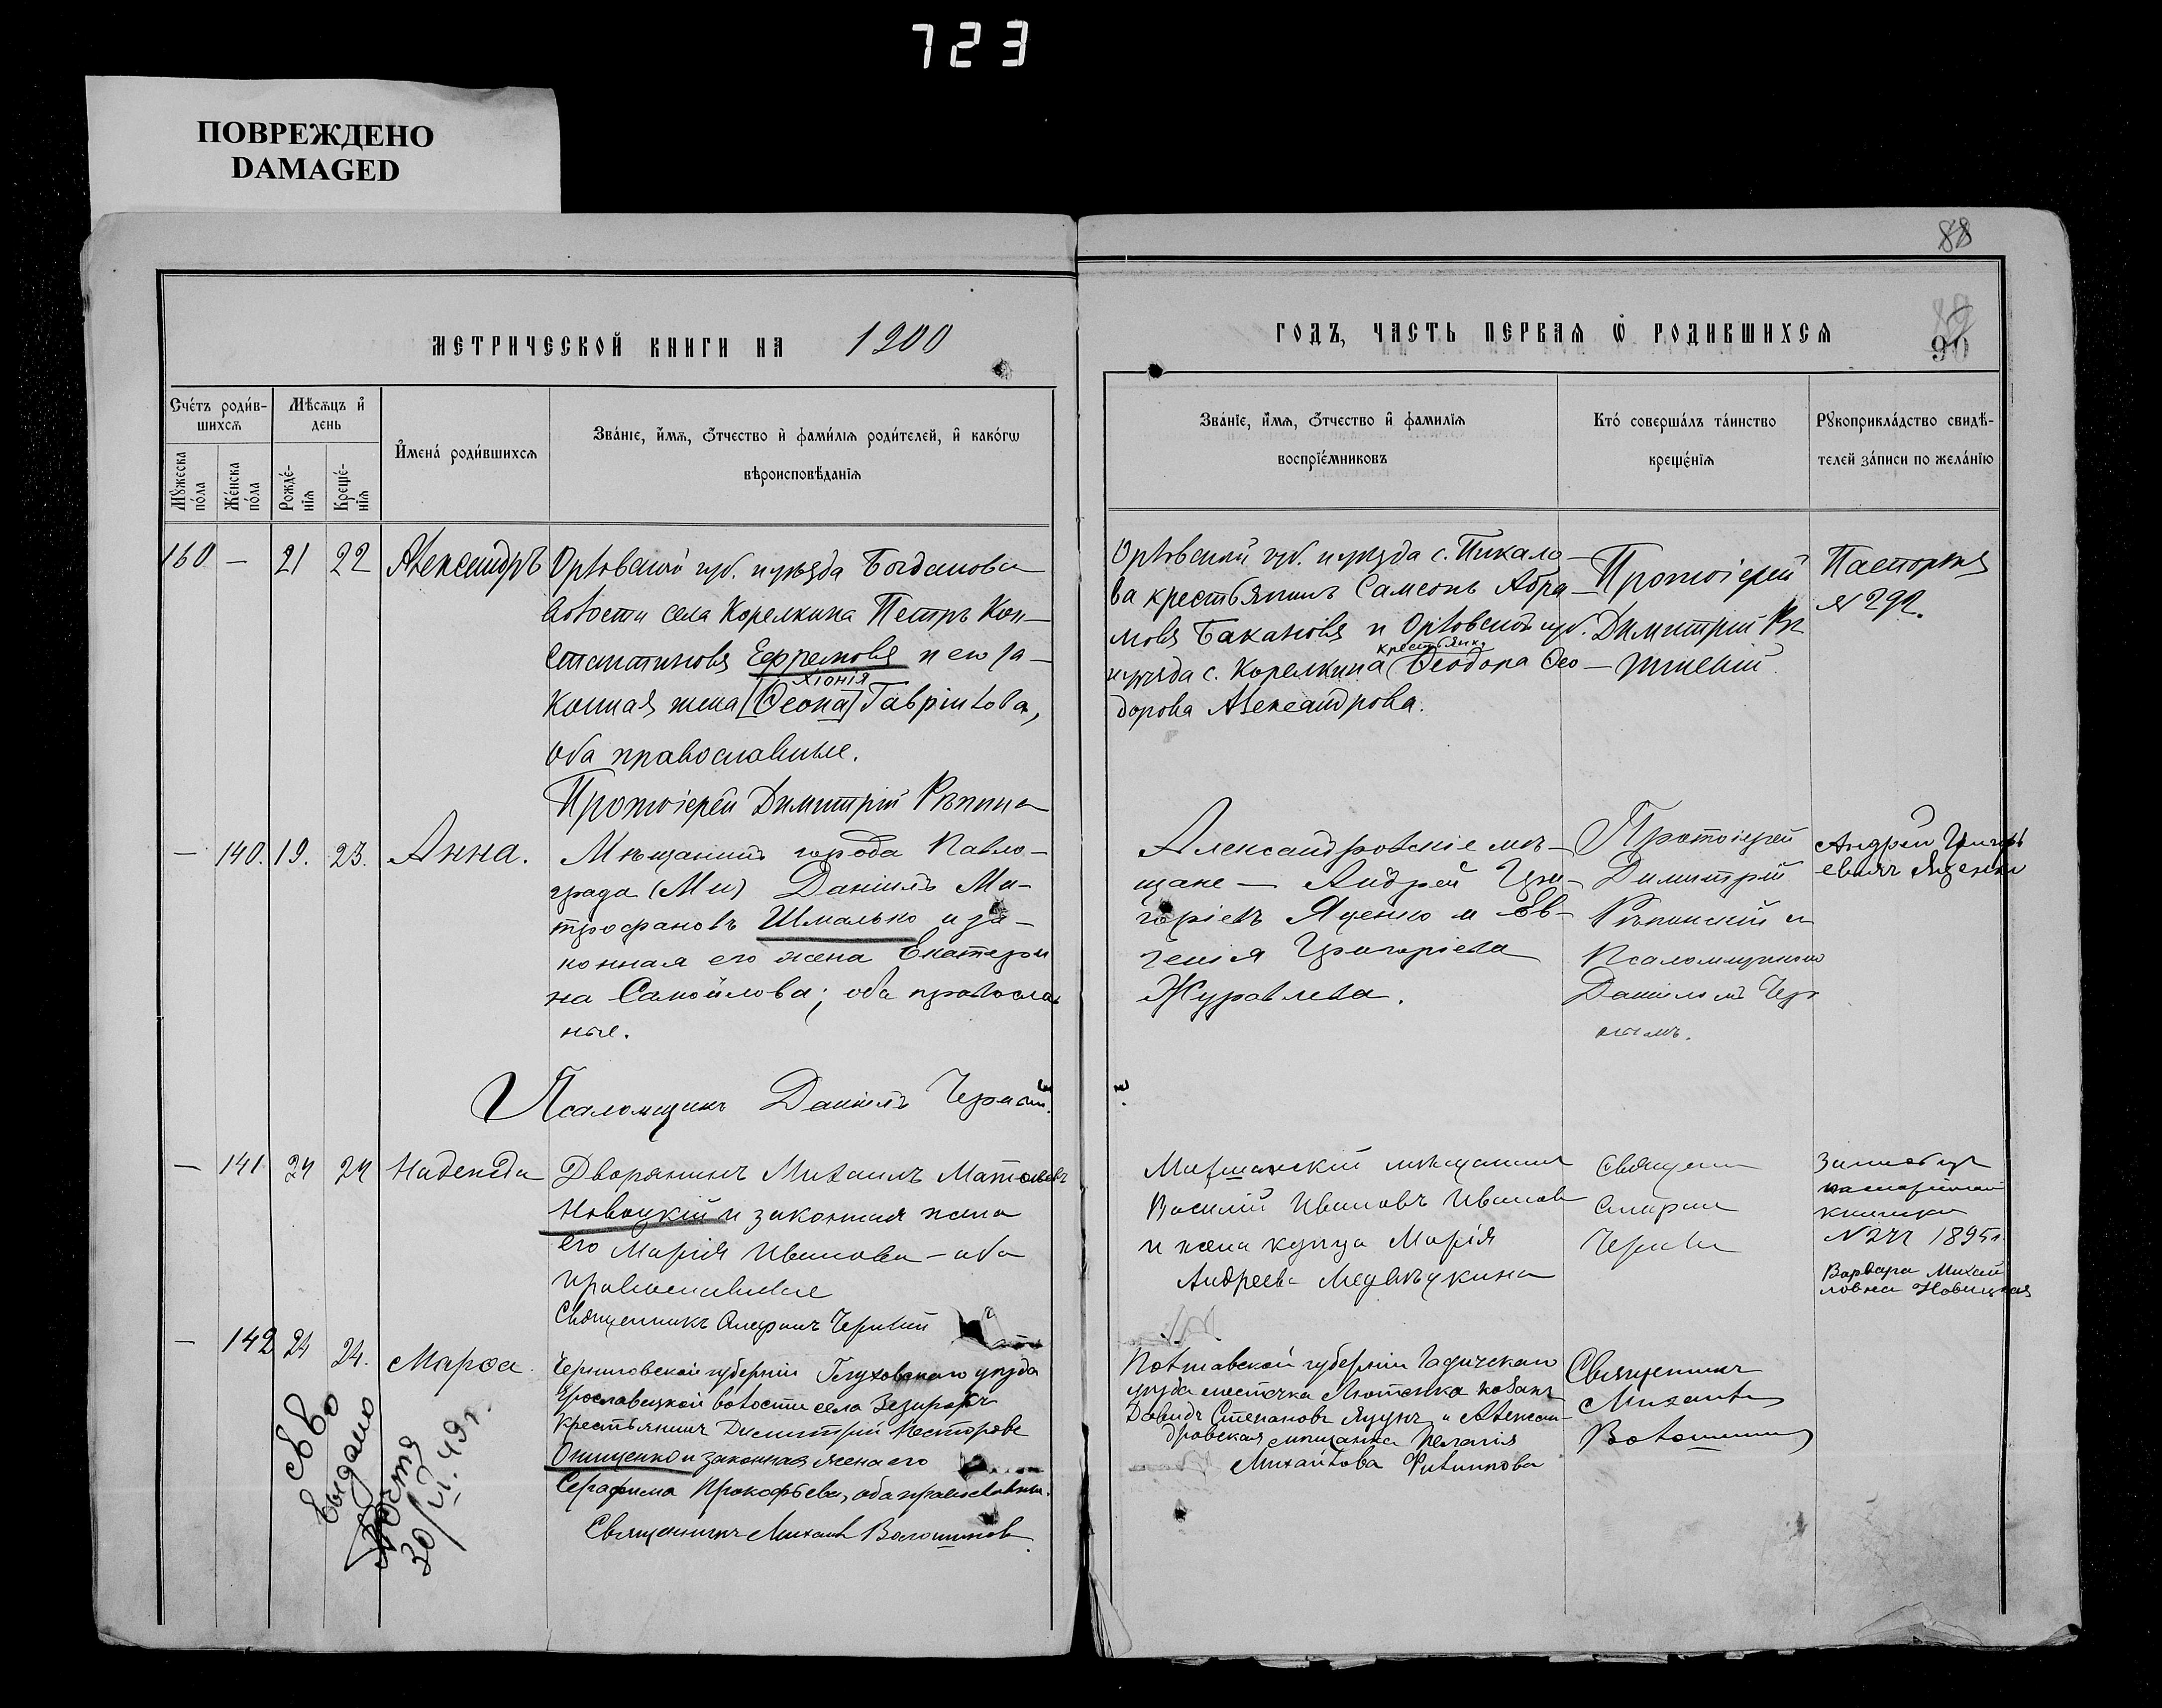 723
ПОВРЕЖДЕНО
DAMAGED
88
90
МЕТРИЧЕСКОЙ КНИГИ НА 1900
ГОДЪ, ЧАСТЬ ПЕРВАЯ Ѿ РОДИВШИХСЯ
Счéтъ роди́в-
шихсѧ
Мѣсѧцъ и҆
день
Мꙋ́жеска
по́ла
Же́нска
по́ла
Рожде́-
нїѧ
Креще́-
нїѧ
И҆мена̀ роди́вшихсѧ
Зва́нїе, и҆́мѧ, ѻ҆́тчество и҆ фами́лїѧ роди́телей, и҆ како́гѡ
вѣроисповѣ́данїѧ
Зва́нїе, и҆́мѧ, ѻ҆́тчество и҆ фамилїѧ
воспрїе́мниковъ
Кто̀ соверша́лъ та́инство
креще́нїѧ
Рꙋкоприкла́дство свидѣ́-
телей за́писи по жела́нїю
160 — 21 22 Александръ
Орловской губ. и уѣзда Богдановск
волости села Корелкина Петръ Кон-
стантиновъ Ефремовъ и его за-
хіонія
конная жена [Ѳеона] Гавріилова,
оба православные.
Протоіерей Димитрій Рѣпинск
Орловской губ. и уѣзда с. Пикало-
ва крестьянинъ Самсонъ Абра-
мовъ Бакановъ и Орловской губ.
крестьянка
и уѣзда с. Корелкина Ѳеодора Ѳео-
дорова Александрова.
Протоіерей
Димитрій Рѣ-
пинскій
Паспортъ
№ 292.
— 140. 19. 23. Анна.
Мѣщанинъ города Павло-
града (Ми) Даніилъ Ми-
трофановъ Шмалько и за-
конная его жена Екатери
на Самойлова; оба православ
ные.
Псаломщикъ Даніилъ Черный.
Александровскіе мѣ-
щане — Андрей Гри-
горіевъ Яценко и Ев-
генія Григоріева
Журавлева.
Протоіерей
Димитрій
Рѣпинскій и
Псаломщикомъ
Даніиломъ Чер
нымъ.
Андрей Григорь
евичъ Яценко
— 141 24 24 Надежда
Дворянинъ Михаилъ Матвѣевъ
Новицкій и законная жена
его Марія Иванова — оба
православные
Священникъ Черный
мѣщанинъ
Василій Ивановъ Иванов
и жена купца Марія
Андреева Медвѣдкина
Священ
Черный
паспортной
книжки
1895г.
Варвара Михай
ловна Новицкая
— 142 24 24. Марѳа.
Черниговской губерніи Глуховскаго уѣзда
волости села
крестьянинъ Димитрій Несторовъ
Онищенко и законная жена его
Серафима Прокофьева, оба православны.
Священникъ Михаилъ Волошинов
Полтавской губерніи Гадячскаго
уѣзда мѣстечка Лютенка козакъ
Давидъ Степановъ и Алексан-
дровская мѣщанка Пелагія
Михайлова Филиппова
Священникъ
Михаилъ
Волошинов
св-во
выдано
30/VI.49г.